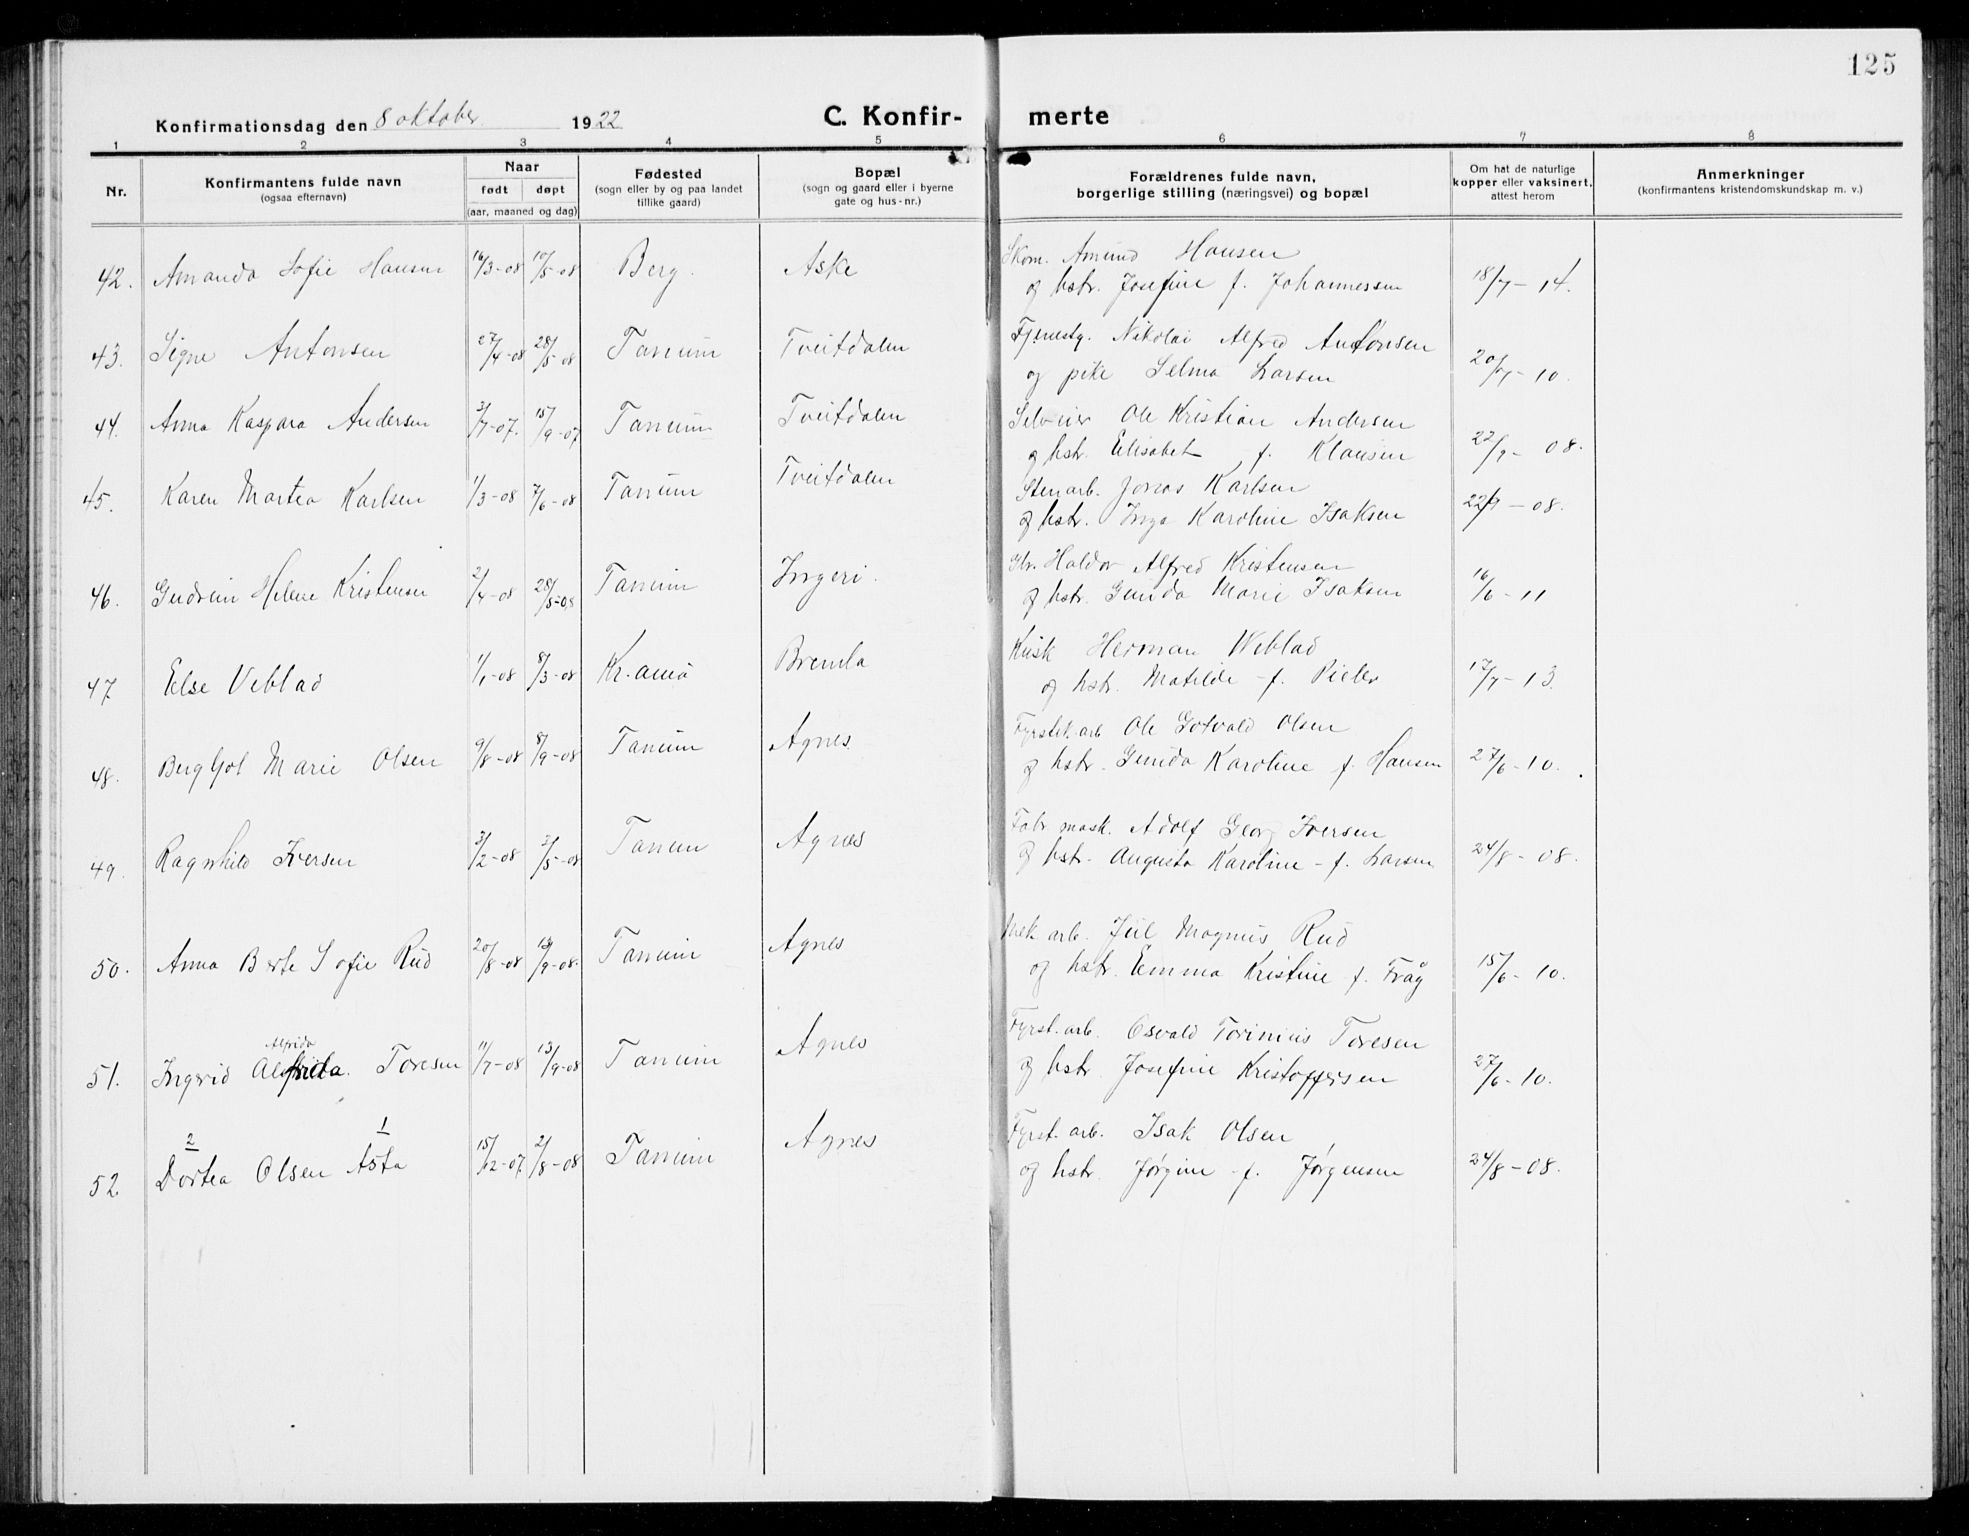 125
Konfirmationsdag den 8 oktober 1922
C. Konfir-
merte
1 2 3 4 5 6 7 8
Nr.
Konfirmantens fulde navn
(ogsaa efternavn)
Naar
født døpt
(aar, maaned og dag)
Fødested
(sogn eller by og paa landet
tillike gaard)
Bopæl
(sogn og gaard eller i byerne
gate og hus-nr.)
Forældrenes fulde navn,
borgerlige stilling (næringsvei) og bopæl
Om hat de naturlige
kopper eller vaksinert,
attest herom
Anmerkninger
(konfirmantens kristendomskundskap m. v.)
42. Amanda Sofie Hansen 16/3-08 10/5-08 Berg. Aske Skom. Amund Hansen
og hstr. Josefine f. Johannessen 18/7-14.
43. Signe Antonsen 27/4-08 28/5-08 Tanum Tveitdalen Nikolai Alfred Antonsen
og pike Selma Larsen 20/7-10.
44. Anna Kaspara Andersen 3/7-07. 15/9-07 Tanum Tveitdalen Selveier Ole Kristian Andersen
og hstr. Elisabet f. Klausen 22/9-08.
45. Karen Martea Karlsen 1/3-08 7/6-08 Tanum Tveitdalen Stenarb. Jonas Karlsen
og hstr. Inga Karoline Isaksen 22/9-08.
46. Gudrun Helene Kristensen 2/4-08 28/5-08 Tanum Ingeri. Haldor Alfred Kristensen
og hstr. Gunda Marie Isaksen 16/6-11
47 Else Veblad 1/1-08 8/3-08 Kr.ania Bremla Kusk Herman Weblad
og hstr. Matilde f. Pieler 17/7-13.
48. Bergljot Marie Olsen 9/8-08 8/9-08 Tanum Agnes. Fyrstik.arb Ole Gotvald Olsen
og hstr. Gunda Karoline f. Hansen 27/6-10.
49. Ragnhild Iversen 3/2-08 3/5-08 Tanum Agnes Fabr mask. Adolf Georg Iversen
og hstr. Augusta Karoline - f. Larsen 24/8-08.
50. Anna Berte Sofie Rud 20/8-08 13/9-08. Tanum Agnes Mek arb. Jul Magnus Rud
og hstr. Emma Kristine f. Fråg 15/6-10.
Alfrida
51. Ingrid Toresen 11/7-08 13/9-08 Tanum Agnes Fyrst.arb. Osvald Torinius Toresen
og hstr. Josefine Kristoffersen 27/6-10.
2 1
52 Dortea Olsen Asta 15/12-07 2/8-08 Tanum Agnes Fyrst.arb. Isak Olsen
og hstr. Jørgine f. Jørgensen 24/8-08.